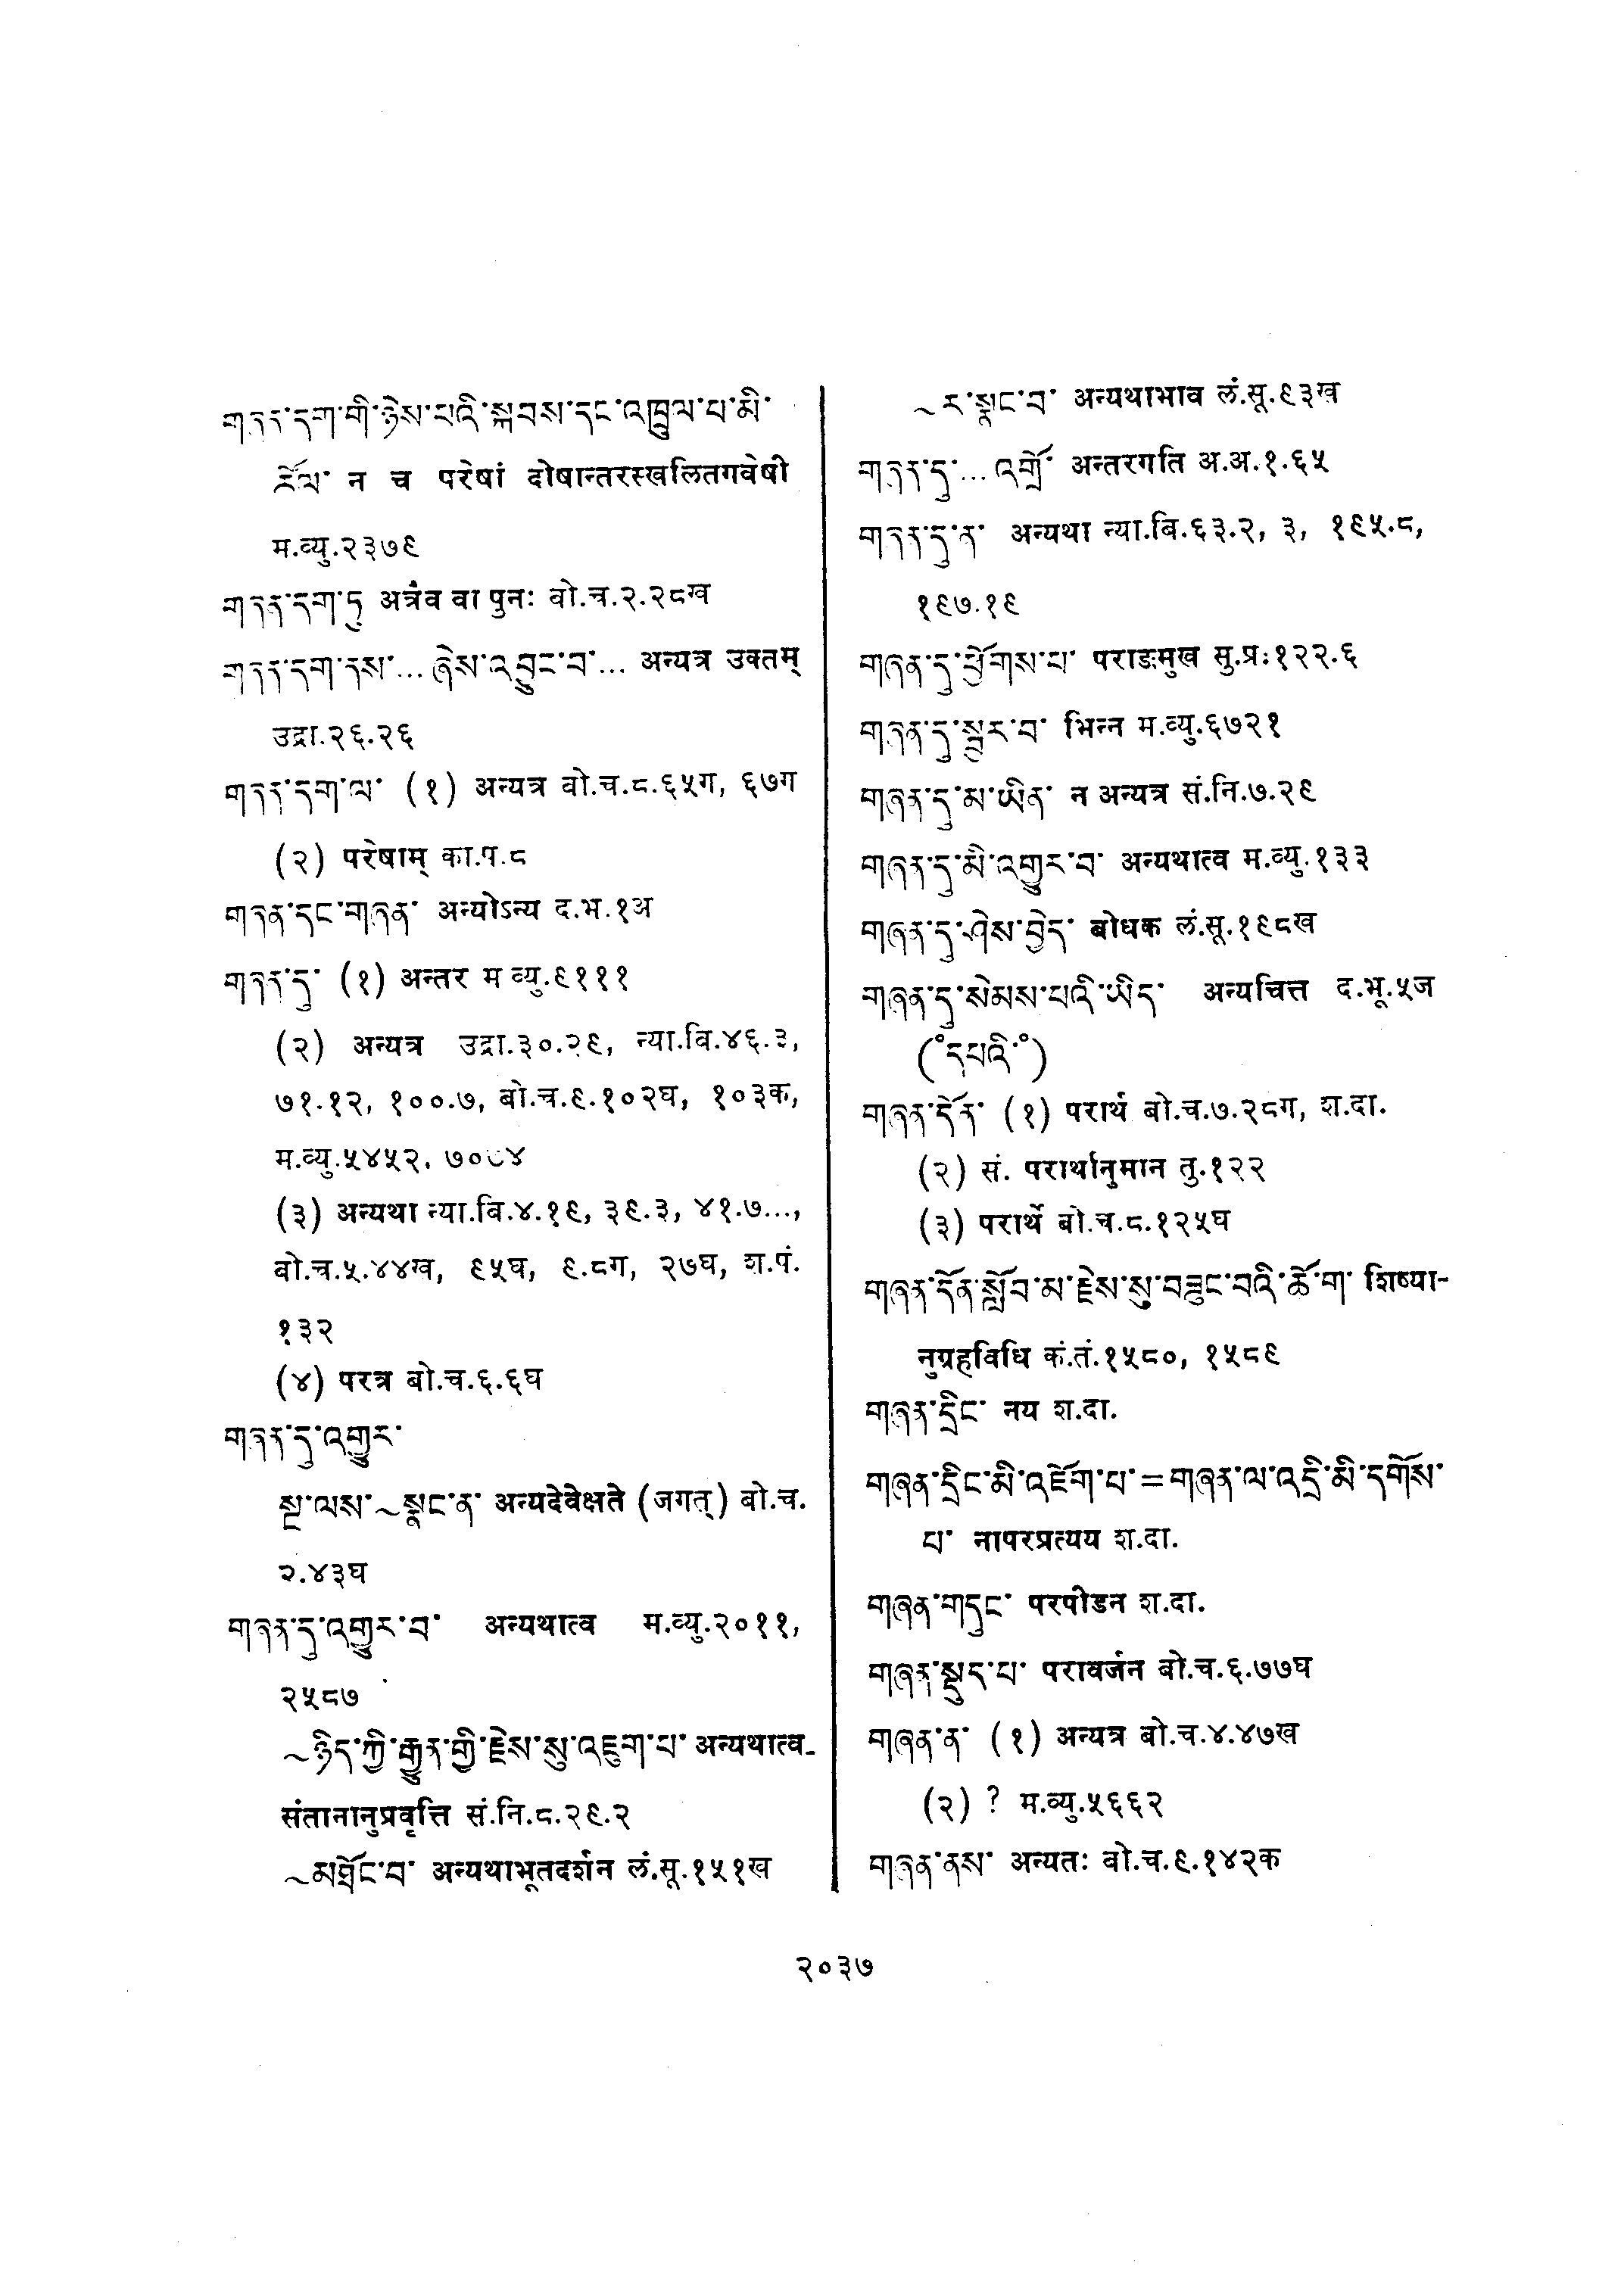 གཞན་དག་གི་ཉེས་པའི་སྐབས་དང་འཁྲུལ་པ་མི་
ཚོལ་ न च परेषां दोषान्तरस्खलितगवेषी
म.व्यु.२३७९
གཞན་དག་ཏུ अत्रैव वा पुनः बो.च.२.२८ख
གཞན་དག་ནས་... ཞེས་འབྱུང་བ་... अन्यत्र उक्तम्
उद्रा.२६.२६
གཞན་དག་ལ་ (१) अन्यत्र बो.च.८.६५ग, ६७ग
(२) परेषाम् का.प.८
གཞན་དང་གཞན་ अन्योऽन्य द.भ.१अ
གཞན་དུ་ (१) अन्तर म व्यु.९१११
(२) अन्यत्र उद्रा.३०.२९, न्या.वि.४६.३,
७१.१२, १००.७, बो.च.९.१०२घ, १०३क,
म.व्यु.५४५२, ७०८४
(३) अन्यथा न्या.वि.४.१९, ३९.३, ४१.७...,
बो.च.५.४४ख, ९५घ, ९.८ग, २७घ, श.पं.
१३२
(४) परत्र बो.च.६.६घ
གཞན་དུ་འགྱུར་
སྔ་ལས་~སྣང་ན་ अन्यदेवेक्षते (जगत्) बो.च.
२.४३घ
གཞན་དུ་འགྱུར་བ་ अन्यथात्व म.व्यु.२०११,
२५८७
~ཉིད་ཀྱི་རྒྱུན་གྱི་རྗེས་སུ་འཇུག་པ་ अन्यथात्व-
संतानानुप्रवृत्ति सं.नि.८.२९.२
~མཐོང་བ་ अन्यथाभूतदर्शन लं.सू.१५१ख
~ར་སྣང་བ་ अन्यथाभाव लं.सू.९३ख
གཞན་དུ་... འགྲོ་ अन्तरगति अ.अ.१.६५
གཞན་དུ་ན་ अन्यथा न्या.बि.६३.२, ३, १९५.८,
१९७.१९
གཞན་དུ་ཕྱོགས་པ་ पराङमुख सु.प्रः१२२.६
གཞན་དུ་སྦྱར་བ་ भिन्न म.व्यु.६७२१
གཞན་དུ་མ་ཡིན་ न अन्यत्र सं.नि.७.२९
གཞན་དུ་མི་འགྱུར་བ་ अन्यथात्व म.व्यु.१३३
གཞན་དུ་ཤེས་བྱེད་ बोधक लं.सू.१९८ख
གཞན་དུ་སེམས་པའི་ཡིད་ अन्यचित्त द.भू.५ज
(°དཔའི་°)
གཞན་དོན་ (१) परार्थ बो.च.७.२८ग, श.दा.
(२) सं. परार्थानुमान तु.१२२
(३) परार्थे बो.च.८.१२५घ
གཞན་དོན་སློབ་མ་རྗེས་སུ་བཟུང་བའི་ཆོ་ག་ शिष्या-
नुग्रहविधि कं.तं.१५८०, १५८९
གཞན་དྲིང་ नय श.दा.
གཞན་དྲིང་མི་འཇོག་པ་=གཞན་ལ་འདྲི་མི་དགོས་
པ་ नापरप्रत्यय श.दा.
གཞན་གདུང་ परपीडन श.दा.
གཞན་སྡུད་པ་ परावर्जन बो.च.६.७७घ
གཞན་ན་ (१) अन्यत्र बो.च.४.४७ख
(२) ? म.व्यु.५६६२
གཞན་ནས་ अन्यतः बो.च.९.१४२क
२०३७